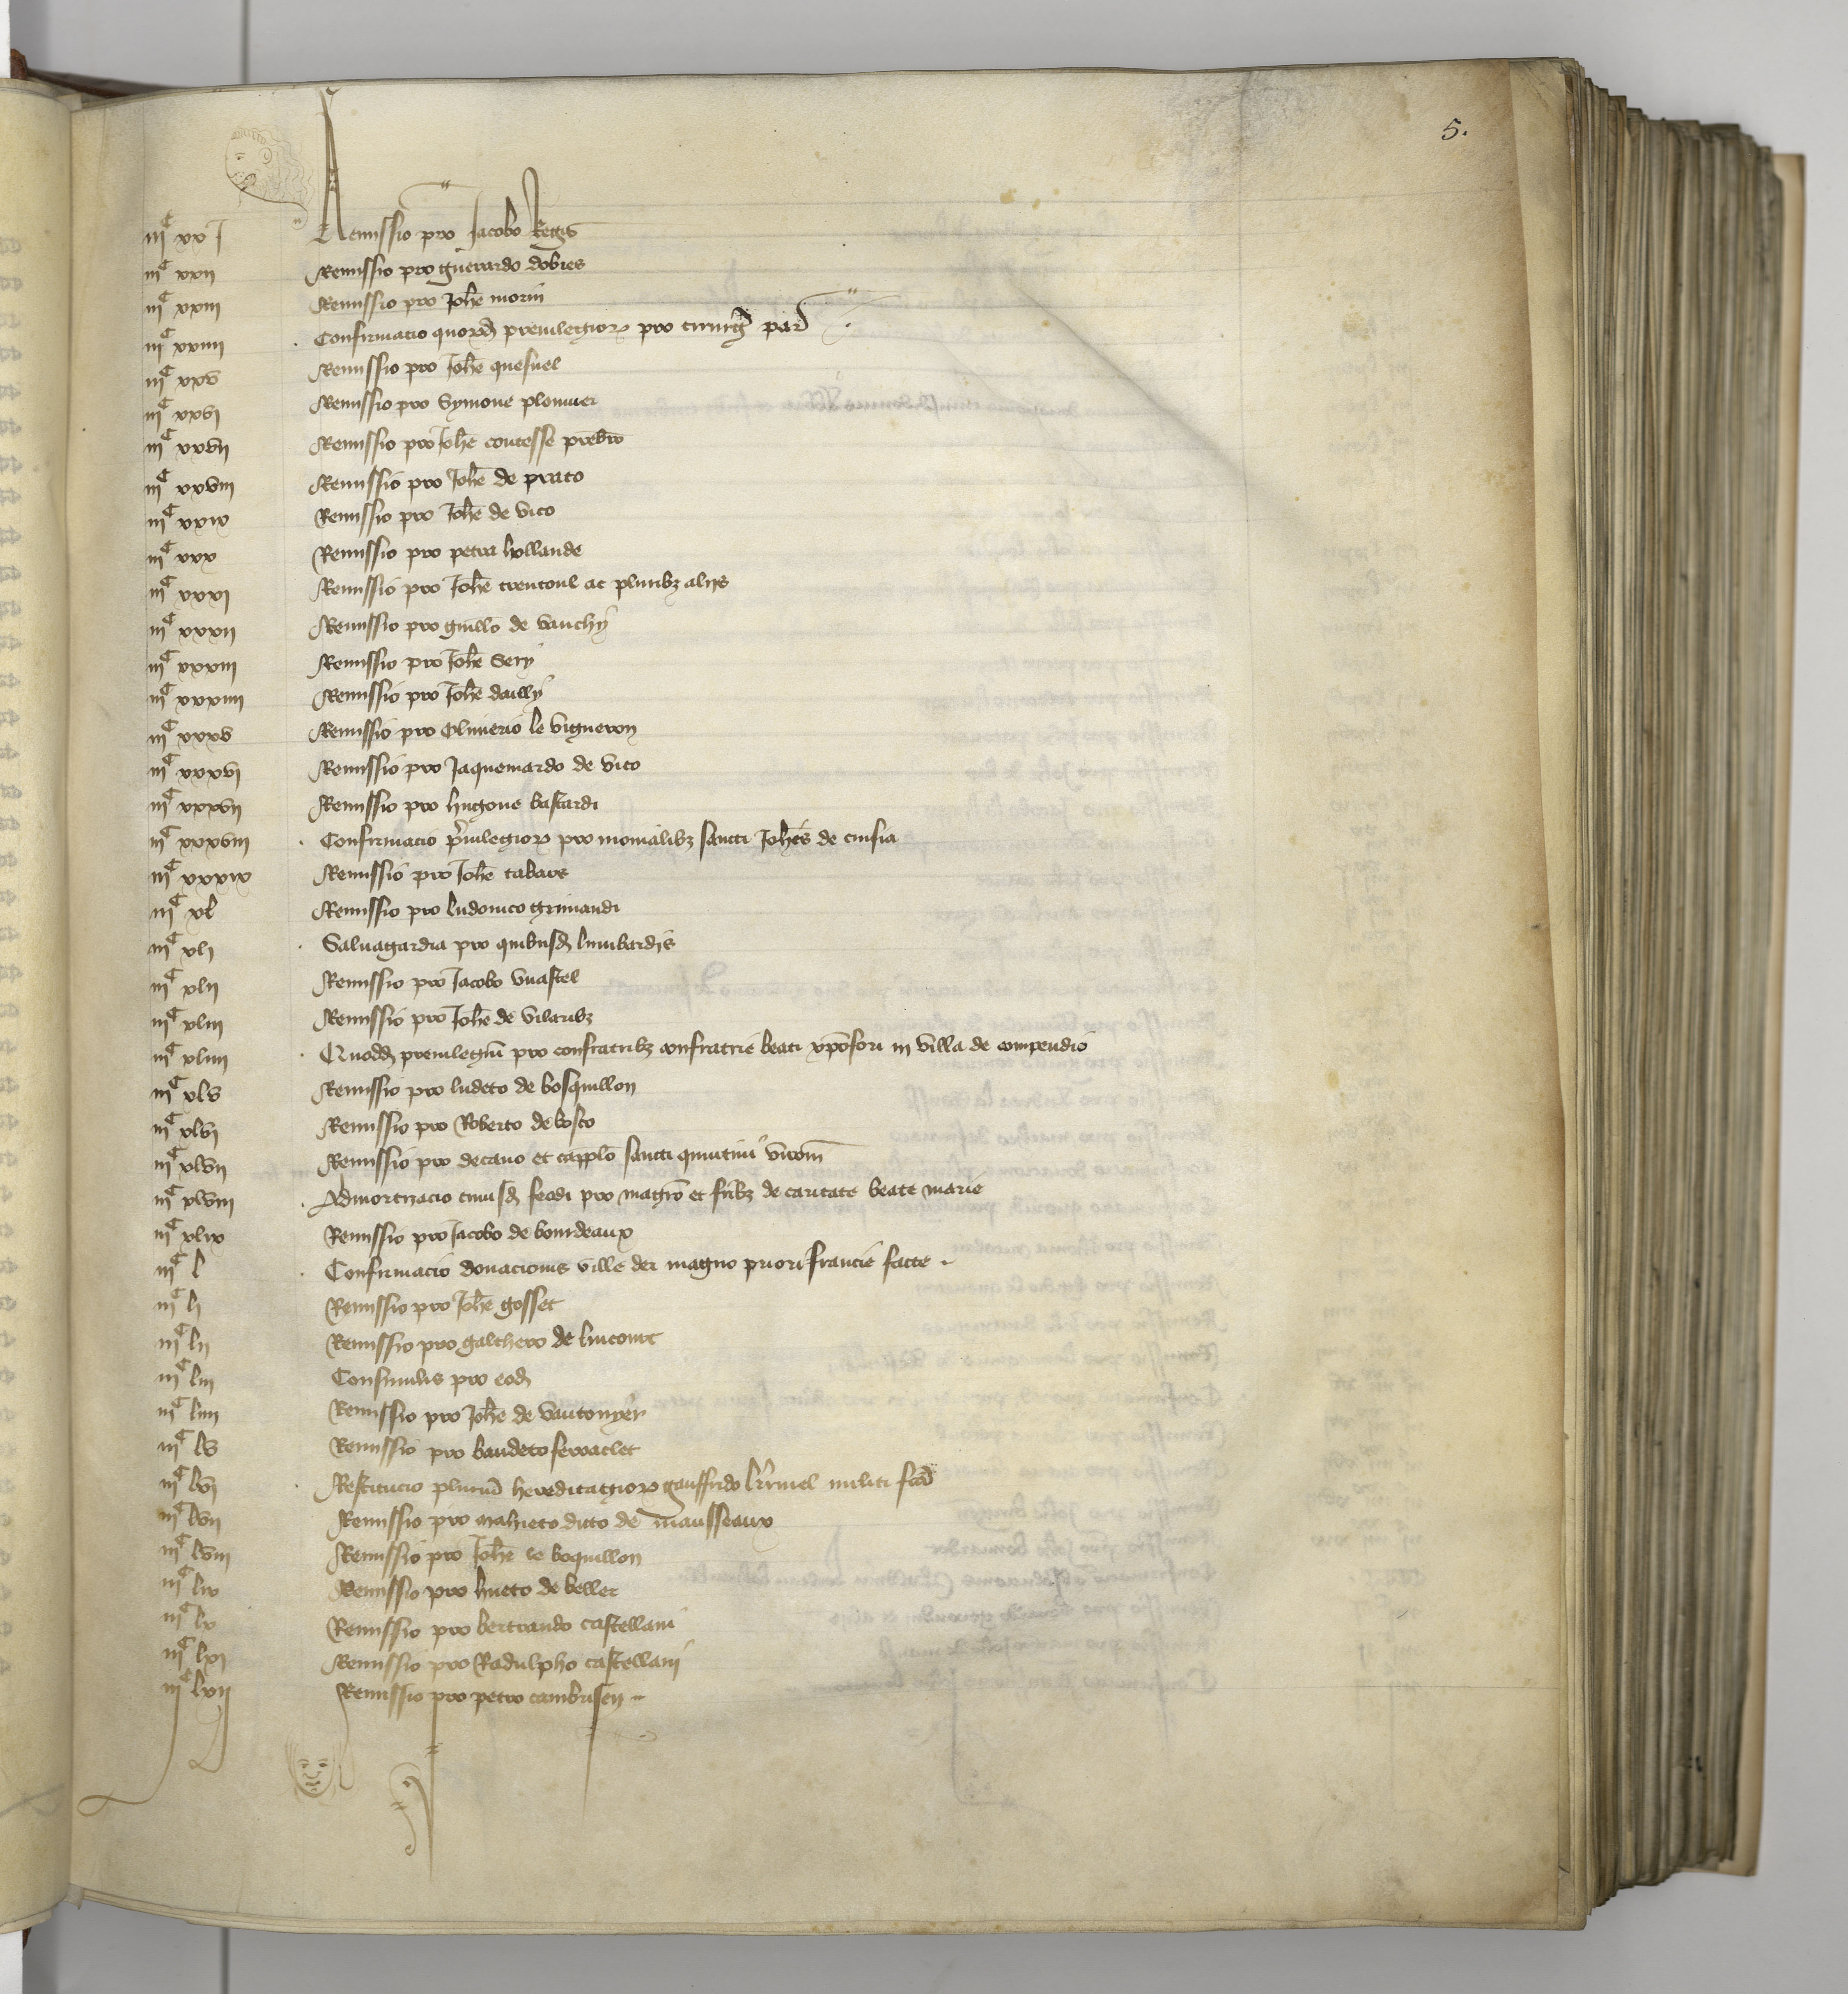 5.
iijᶜ xxj Remissio pro Jacobo Regis
iijᶜ xxij Remissio pro guerardo dobies
iijᶜ xxiij Remissio pro Joh̄e morin
iijᶜ xxiiij Confirmacio quorūd̄ preuilegior̄ pro cirurḡ par̄
iijᶜ xxv Remissio pro Joh̄e quesnel
iijᶜ xxvj Remissio pro Symone plommer
iijᶜ xxvij Remissio pro Joh̄e contesse prēbrō
iijᶜ xxviij Remissio pro Joh̄e de prato
iijᶜ xxix Remissio pro Joh̄e de vico
iijᶜ xxx Remissio pro petro hollande
iijᶜ xxxj Remissio pro Joh̄e trentoul ac pluribꝫ alijs
iijᶜ xxxij Remissio pro guill̄o de vauchy
iijᶜ xxxiij Remissio pro Joh̄e Sery
iijᶜ xxxiiij Remissio pro Joh̄e dailly
iijᶜ xxxv Remissio pro Oliuerio le vigneron
iijᶜ xxxvj Remissio pro Jaquemardo de vico
iijᶜ xxxvij Remissio pro hugone bastardi
iijᶜ xxxviij Confirmacio p̄uilegior̄ pro monialibꝫ sancti Joh̄is de cuisia
iijᶜ xxxix Remissio pro Joh̄e tabare
iijᶜ xl Remissio pro ludouico grimaudi
iijᶜ xlj Saluagardia pro quibusd̄ lumbardis
iijᶜ xlij Remissio pro Jacobo vuastel
iijᶜ xliij Remissio pro Joh̄e de vilaribꝫ
iijᶜ xliiij Quodd̄ preuilegiū pro confratribꝫ confratrie beati xp̄ofori in villa de compendio
iijᶜ xlv Remissio pro ludeto de bosquillon
iijᶜ xlvj Remissio pro Roberto de bosco
iijᶜ xlvij Remissio pro decano et capp̄lo sancti quintini virom̄
iijᶜ xlviij Admortizacio cuiusd̄ feodi pro magr̄o et fr̄ibꝫ de caritate beate marie
iijᶜ xlix Remissio pro Jacobo de bourdeaux
iijᶜ l Confirmacio donacionis ville dei magno priori francie facte
iijᶜ lj Remissio pro Joh̄e gosset
iijᶜ lij Remissio pro galthero de lincourt
iijᶜ liij Consimilis pro eod̄
iijᶜ liiij Remissio pro Joh̄e de vautouyer
iijᶜ lv Remissio pro baudeto ferraclet
iijᶜ lvj Restitucio pluriū hereditagior̄ gauffrido militi fc̄a
iijᶜ lvij Remissio pro mahieto dicto de mausseaux
iijᶜ lviij Remissio pro Joh̄e le boquillon
iijᶜ lix Remissio pro hueto de beller
iijᶜ lx Remissio pro bertrando castellani
iijᶜ lxj Remissio pro Radulpho castellani
iijᶜ lxij Remissio pro petro cambrisen